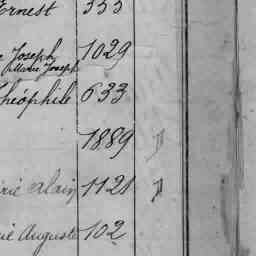 Ernest 333
Joseph 1029
Marie Joseph
Théophile 633
1889 "
rie Alain 1121 "
rie Auguste 102